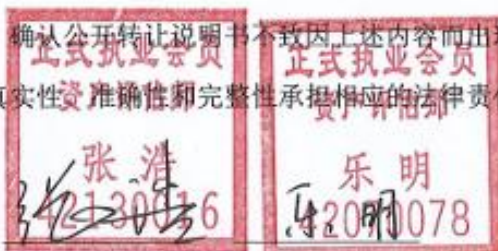 确认公开转让说明书不致因上述内容而出
实性、准确性和完整性承担相应的法律责
正式执业会员
资产评估师
张浩
42130016
正式执业会员
资产评估师
乐明
42000078